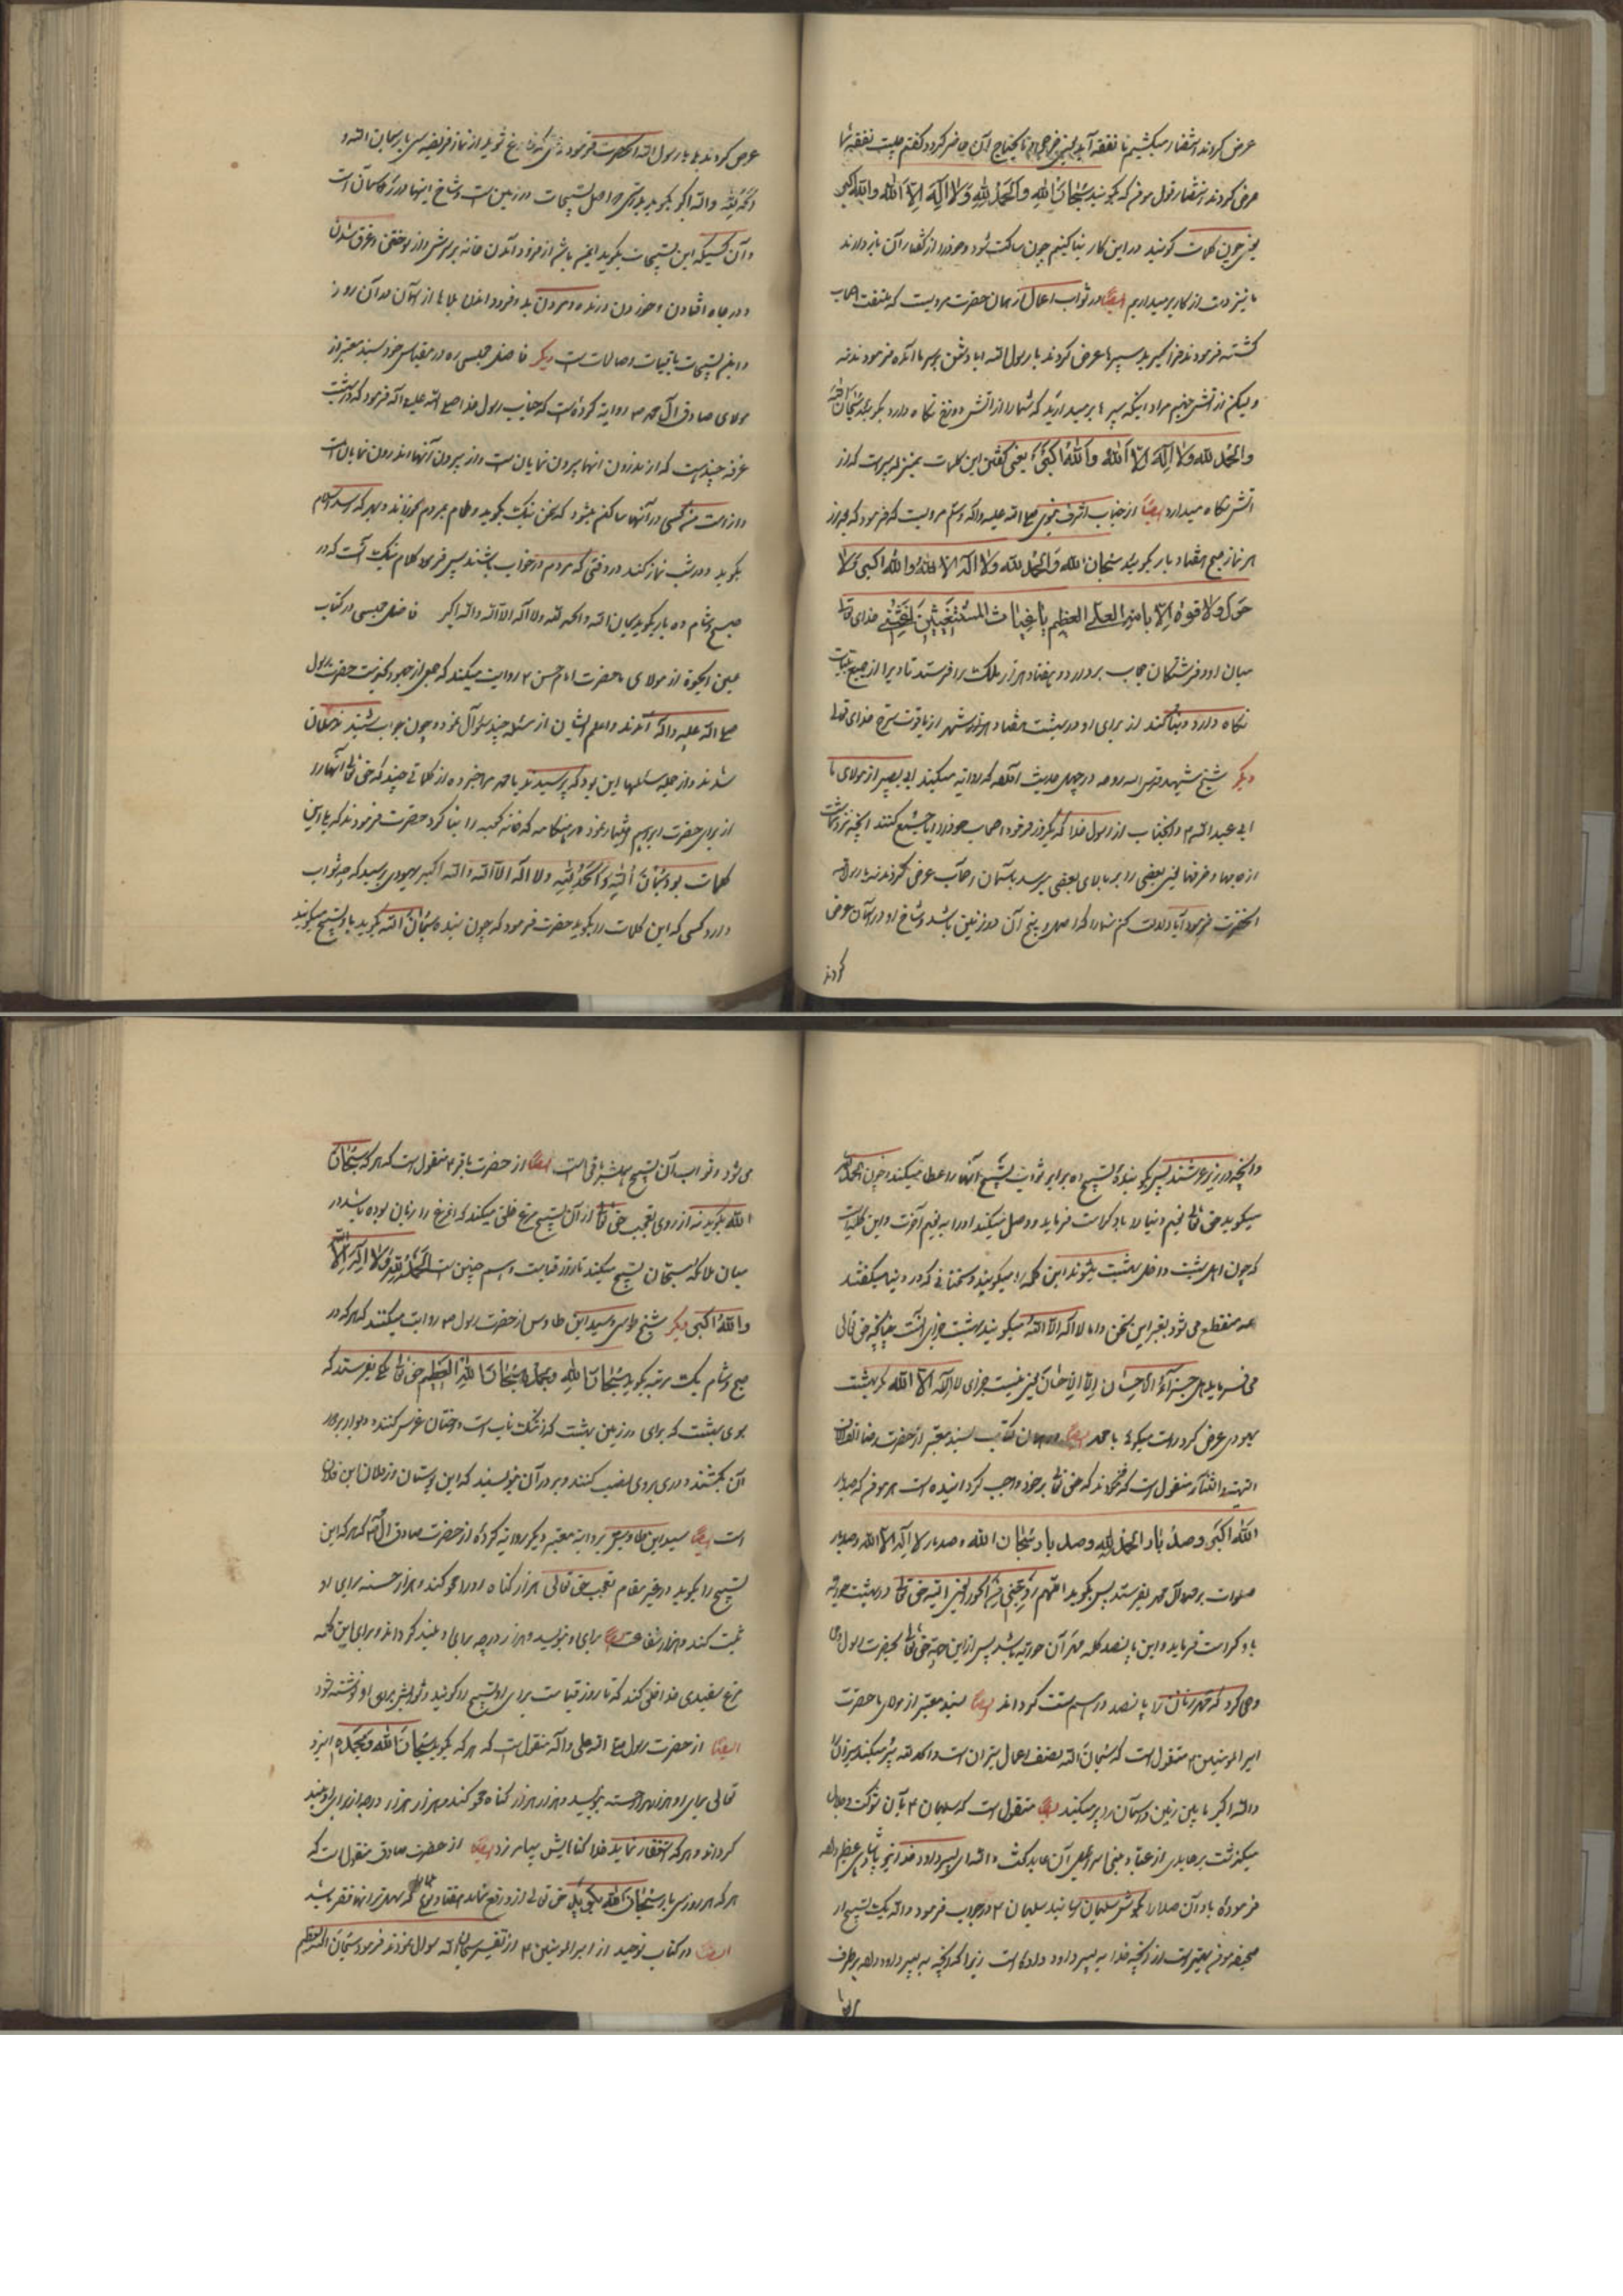 عرض کردند انتظار میکشیم تا نفقه آید یعنی خرجی و ما یحتاج آن حاضر کردد گفتم چیست نفقه شما
عرض کردند انتظار قول مومنم که بگوید سُبْحَانَ اللهِ وَالْحَمْدُ لِلهِ وَلا اِلَهَ اِلاَّ اللهُ وَاللهُ اکبر
یعنی چون کلمات گویند در این کار بنا کنیم چون ساکت شود و خود را از گفتار آن باز دارند
ما نیز دست از کار برمیداریم ایضاً در ثواب اعمال از همان حضرت مرویست که ملتفت اصحاب
گشته فرمودند فرا گیرید سپرها عرض کردند یا رسول الله ایا دشمن بر سر ما آمده فرمودند نه
ولیکن از آتش جهنم مراد اینکه سپرها برمیدارید که شما را از آتش دوزخ نگاه دارد بگوئید سُبْحَانَ الله
وَالْحَمْدُ لله وَلا اِلَهَ اِلاَّ اللهُ وَاللهُ اَکبَرُ یعنی گفتن این کلمات بمنزله سپرست که از
آتش نگاه میدارد ایضاً از جناب اشرف نبوی صلی الله علیه واله وسلم مرویست که فرمود که هر که از
هر نماز صبح هفتاد بار بگوید سُبْحَانَ الله وَالْحَمْدُ لله وَلا اِلَهَ اِلا اللهُ وَاللهُ اکبر وَلا
حَوْلَ وَلا قوة اِلاَّ باللهِ العلی العظیم یا غیاث المُسْتَغیثینَ اَغِثْنی خدای تعالی
میان او و فرشتگان حجاب بردارد و هفتاد هزار ملک را فرستد تا ویرا از جمیع بلیات
نگاه دارد و بنا کنند از برای او در بهشت هفتاد هزار شهر از یاقوت سرخ خدای تعالی
دیگر شیخ شهید قدس الله روحه در چهل حدیث آنکه روایه میکند ابی بصیر از مولای ما
ابی عبدالله م و آنجناب از رسول خدا که یکروز فرمود اصحاب خود را ایا جمع کنند آنچه نزد شماست
از جامها و ظرفها یعنی بعضی را بر بالای بعضی برسد باسمان اصحاب عرض کردند نه یا رسول الله
آنحضرت فرمود آیا دلالت کنم شما را که اصل و بیخ آن در زمین باشد و شاخ او در آسمان عرض
کردند
عرض کردند بلی یا رسول الله آنحضرت فرمود وقتی که فارغ شوید از نماز فریضه سی بار سبحان الله و
والحمدلله والله اکبر بگوید بدرستی اصل تسبیحات در زمین است و شاخ اینها در آسمان است
و آن کسیکه این تسبیحات بگوید ایمن باشد از فرود آمدن خانه بر سرش و از سوختن و غرق شدن
و در چاه افتادن و خوردن درنده و مردن بد و فرود آمدن بلاها از آسمان در آن روز
و این تسبیحات باقیات وصالحات است دیگر فاضل مجلسی ره در مقباس خود بسند معتبر از
مولای صادق آل محمد م روایه کرده است که جناب رسول خدا صلی الله علیه واله فرمود که در بهشت
غرفه چند هست که از اندرون انها بیرون نمایان است و از بیرون آنها اندرون نمایان است
و از امت من کسی در آنها ساکن میشود که سخن نیک بگوید و طعام بمردم بخوراند و بهر که رسد سلام
بگوید و در شب نماز کند در وقتی که مردم در خواب باشند پس فرمود کلام نیک آنست که در
صبح و شام ده بار بگوید سبحان الله والحمد لله ولا اله الا الله والله اکبر فاضل مجلسی در کتاب
عین الحیوة از مولای ما حضرت امام حسن م روایت میکند که جمعی از یهود بخدمت حضرت رسول
صلی الله علیه واله آمدند واعلم ایشان از مسئله چند سئوال نموده چون جواب شنید مسلمان
شدند و از جمله مسئلها این بود که پرسیدند یا محمد مرا خبر ده از کلماتی چند که حق تعالی آنها را
از برای حضرت ابراهیم اختیار نموده در هنگامیکه خانه کعبه را بنا کرد حضرت فرمودند که بلی این
کلمات بود سُبْحانَ اللهِ وَالْحَمْدُ لِلّهِ ولا اله الا الله والله اکبر یهودی پرسید که چه ثواب
دارد کسی که این کلمات را بگوید حضرت فرمود که چون بنده سُبْحانَ الله بگوید با او تسبیح میگویند
و آنچه در زیر عرشند پس بگوینده تسبیح ده برابر ثواب تسبیح آنها را عطا میکنند و چون الحمدلله
میگوید حق تعالی نعیم دنیا را باو کرامت فرماید و وصل میکند او را به نعیم آخرت و این کلمه ایست
که چون اهل بهشت داخل بهشت میشوند این کلمه را میگویند و سخنانی که در دنیا میگفتند
همه منقطع می شود بغیر این سخن و اما لا اله الا الله میگویند بهشت جزای آنست چنانچه حق تعالی
می فرماید هل جزاء الاحسان الا الاحسان یعنی نیست جزای لا اله الا الله مگر بهشت
یهودی عرض کرد راست میگوئی یا محمد ایضاً در همان کتاب بسند معتبر از حضرت رضا
التحیة والثنا منقول است که فرمودند که حق تعالی بر خود واجب گردانیده است هر مومنم که صد بار
الله اکبر وصد بار الحمد لله وصد بار سُبْحَان الله و صد بار لا اِلَه الا الله وصد بار
صلوات بر محمد وآل محمد بفرستد پس بگوید اللهم زوجنی من الحور العین البته حق تعالی در بهشت حوریه
باو کرامت فرماید و این پانصد کلمه مهر آن حوریه باشد پس از این جهة حق تعالی بحضرت رسول م
وحی کرد که مهر زنان را پانصد درهم سنت گرداند ایضاً بسند معتبر از مولای ما حضرت
امیرالمومنین م منقول است که سُبحان الله نصف اعمال میزان است و الحمد لله پر میکند میزان را
والله اکبر مابین زمین و آسمان را پر میکند ایضاً منقول است که سلیمان م بآن شوکت و جلال
میگذشت بر عابدی از عباد بنی اسرائیل آن عابد گفت والله ای پسر داود خدا بتو پادشاهی عظیم داده
فرموده باد آن صدا را بگوش سلیمان رسانید سلیمان م در جواب فرمود والله یک تسبیح در
صحیفه مومنم بهتر است از آنچه خدا به پسر داود داده است زیرا که آنچه به پسر داود داده برطرف
می شود و ثواب آن تسبیح همیشه باقی است ایضاً از حضرت باقر م منقول است که هر که سُبْحانَ
الله بگوید نه از روی تعجب حق تعالی از آن تسبیح مرغی خلق میکند که آنمرغ را زبان بوده باشد در
میان ملائکه مسبّحان تسبیح میکند تا روز قیامت و همچنین است الحَمْدُ لِلهِ وَلا اِلَهَ اِلاَّ الله
وَاللهُ اکبر دیگر شیخ طوسی و سید ابن طاوس از حضرت رسول م روایت میکنند که هر که در
صبح و شام یک مرتبه بگوید سُبْحَانَ اللهِ وبحمده سُبْحَانَ اللهِ العَظیم حق تعالی ملکی بفرستد که
بوی بهشت که برای در زمین بهشت که از مشک ناب است درختان غرس کند و دیوار بر دور
آن بکشند و دری بر وی نصب کنند و بر در آن بنویسند که این بوستان از فلان ابن فلان
است ایضاً سید ابن طاوس بروایه معتبر دیگر روایه کرده از حضرت صادق آل محمد م که هر که این
تسبیح را بگوید در غیر مقام تعجب حق تعالی هزار گناه او را محو کند و هزار حسنه برای او
ثبت کند و هزار شفاعت برای او بنویسد و هزار درجه برای او بلند گرداند و برای این کلمه
مرغ سفیدی خدا خلق کند که تا روز قیامت برای او تسبیح را گویند و ثوابش برای او نوشته شود
ایضاً از حضرت رسول صلی الله علی واله منقول است که هر که بگوید سُبْحَانَ الله وبحمده ایزد
تعالی برای او هزار هزار حسنه بنویسد و هزار هزار گناه محو کند و هزار هزار درجه از برای او بلند
گرداند و هر که استغفار نماید خدا گناهانش بیامرزد ایضاً از حضرت صادق منقول است که
هر که هر روز سی بار سُبْحان الله بگوید حق تعالی از او دفع نماید هفتاد نوع بلا که سهل تر آنها فقر باشد
ایضاً در کتاب توحید از امیرالمومنین م از تفسیر سبحان الله سوال نمودند فرمود سُبْحَان الله العظیم